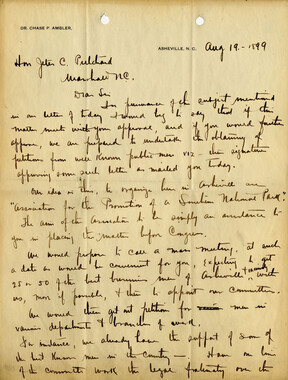 DR. CHASE P. AMBLER.
ASHEVILLE, N. C. Aug 19 - 1899
Hon Jeter C. Pritchard
Marshall N.C.
Dear Sir
In pursuance of the subject mentioned
in our letter of today I would beg to say that if this
matter meets with your approval, and if you would further
approve, we are prepared to undertake the obtaining of
petitions from well known public men viz - the signatures
approving some such letter as mailed you today.
Our idea is this, to organize here in Asheville an
"Association for the Promotion of a Southern National Park".
The aim of the Association to be simply an assistance to
you in placing the matter before Congress.
We would propose to call a mass-meeting, at such
a date as would be convenient for you, expecting to get
25 or 50 of the best business men of Asheville, to meet with
us, more if possible, & then to appoint our committees.
We would then get out petitions for men in
various departments & branches of work.
For instance, we already have the support of some of
the best known men in the country - Have on line
of the committee work the legal fraternity over the